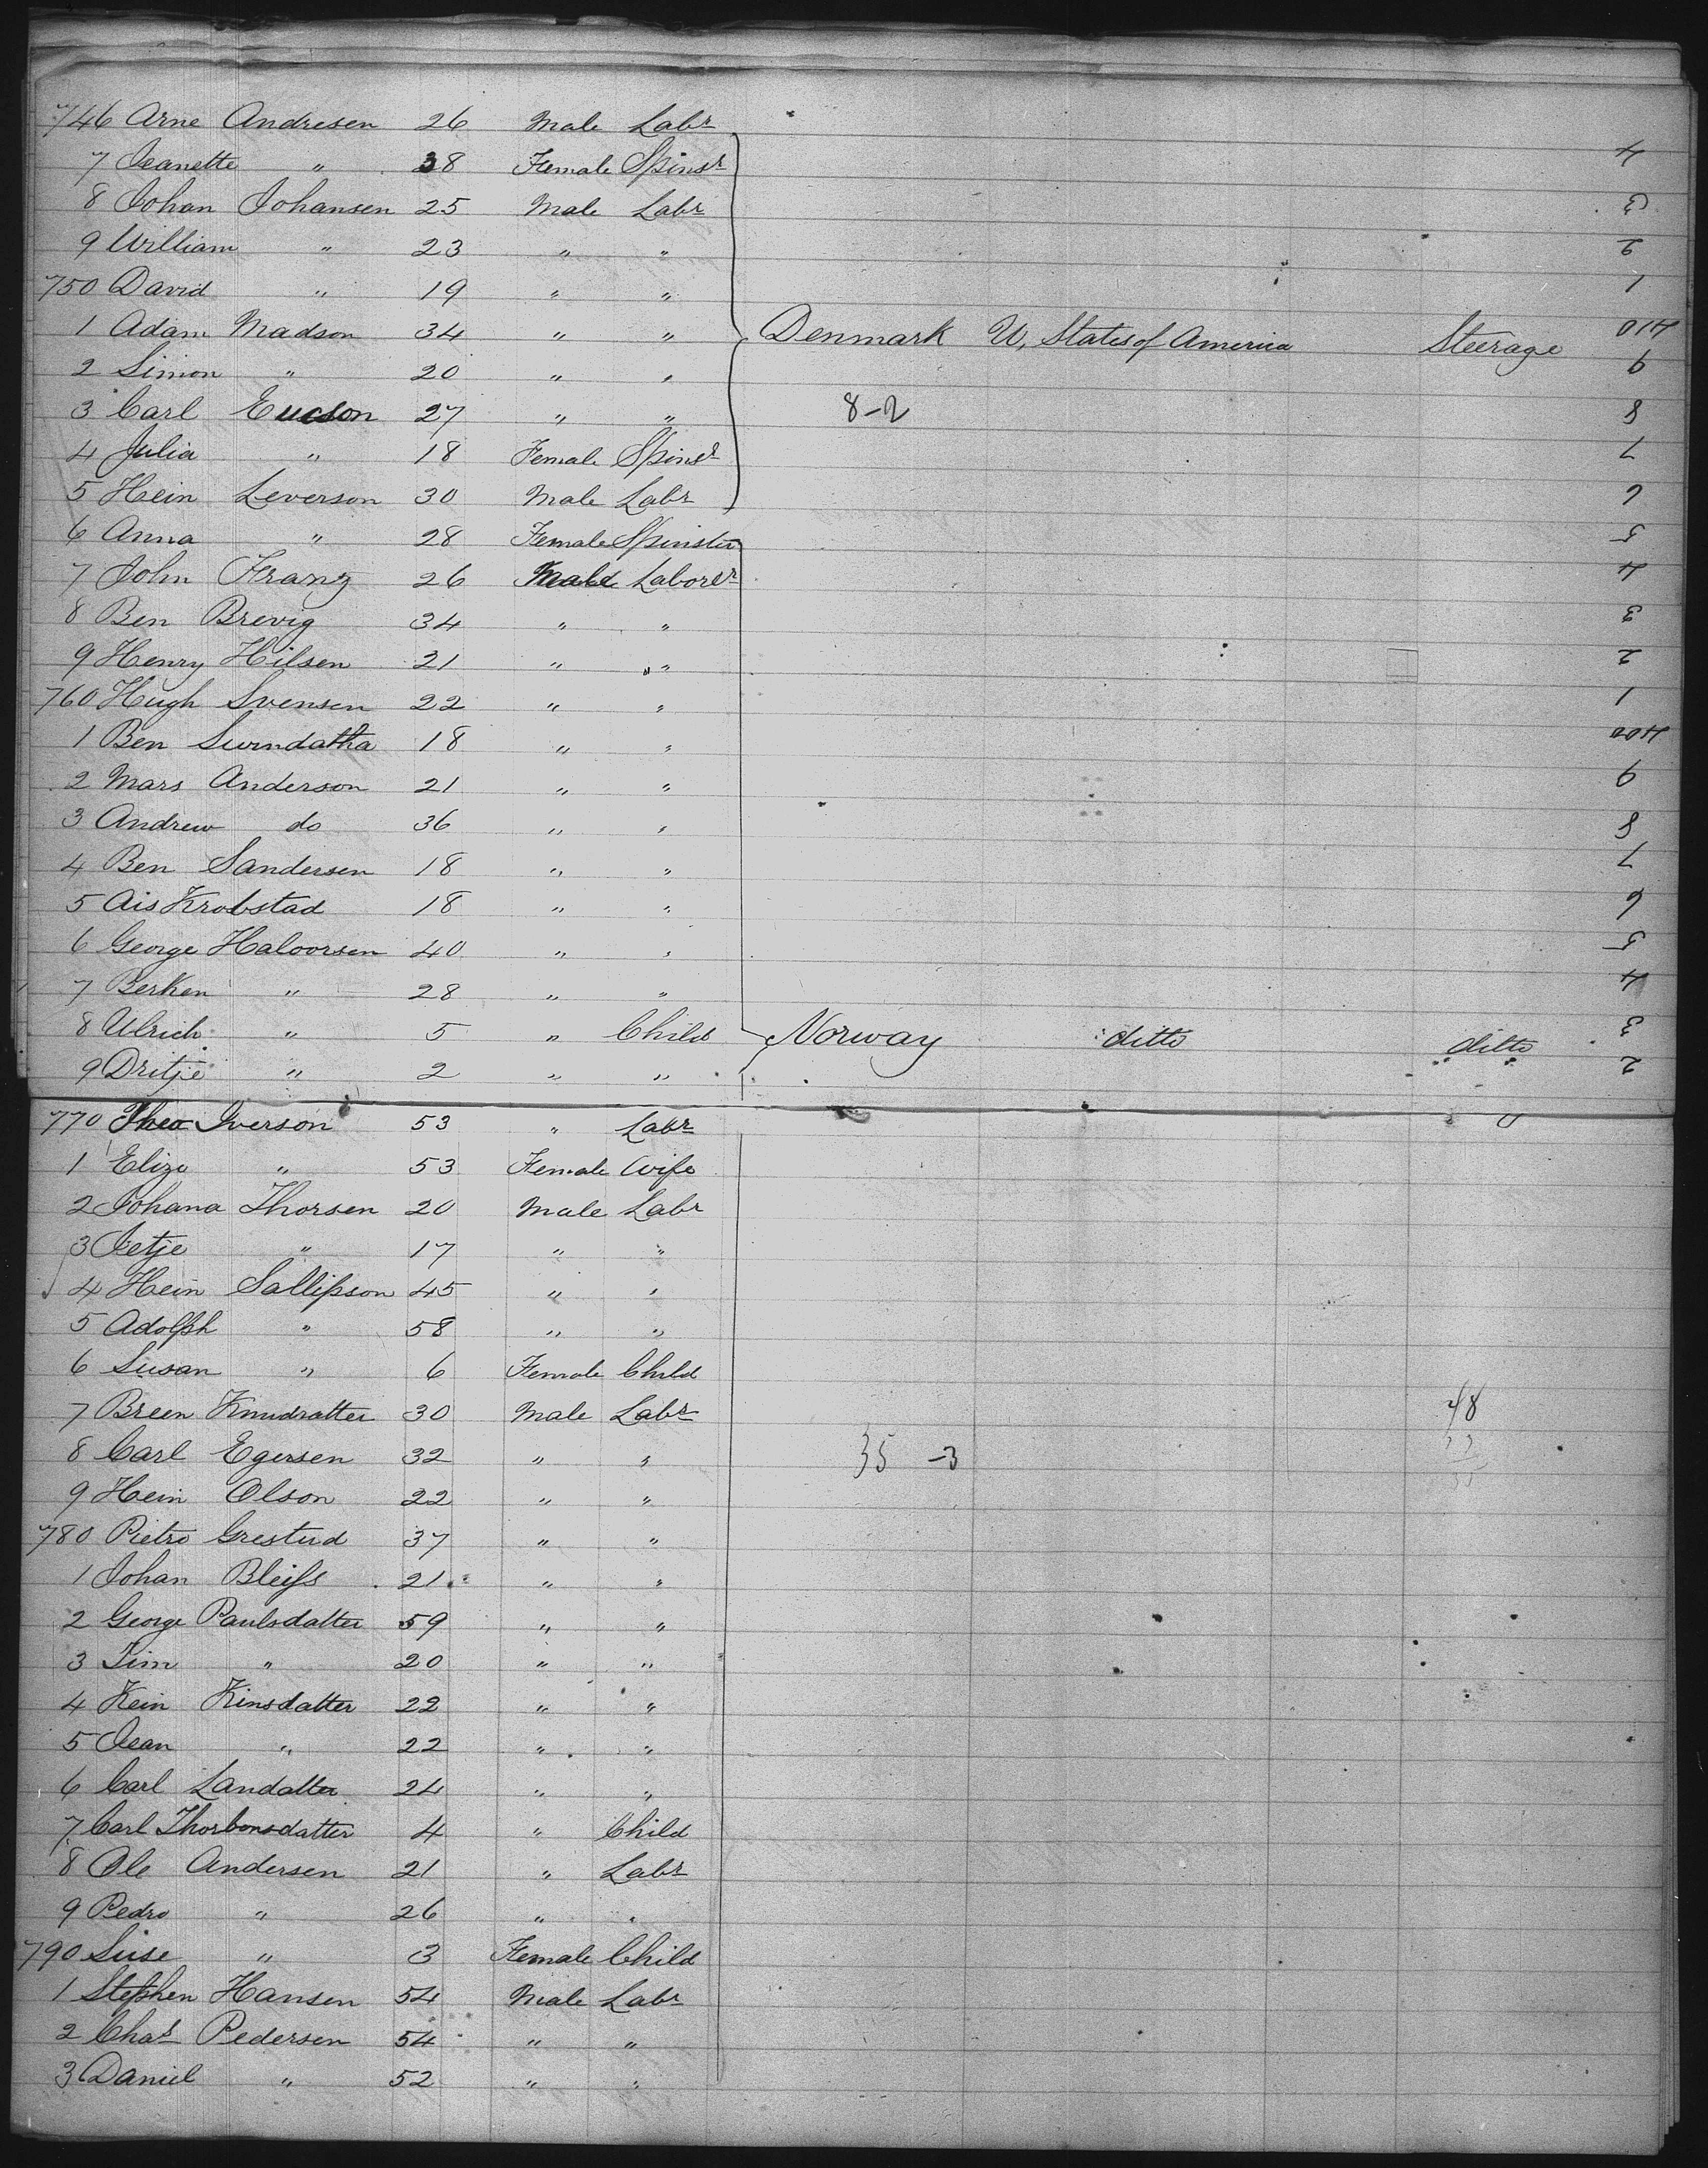 746 Arne Andresen 26 Male Labr
7 Jeanette " 38 Female Spinsr 4
8 Johan Johansen 25 Male Labr 3
9 William " 23 " " 2
750 David " 19 " " 1
1 Adam Madson 34 " " Denmark U, States of America Steerage 410
2 Simon " 20 " " 9
3 Carl Ericson 27 " " 8-2 8
4 Julia " 18 Female Spinsr 7
5 Hein Leverson 30 Male Labr 6
6 Anna " 28 Female Spinster 5
7 John Franz 26 Male Laborer 4
8 Ben Brevig 34 " " 3
9 Henry Hilsen 21 " " 2
760 Hugh Svensen 22 " " 1
1 Ben 18 " " 400
2 Mars Anderson 21 " " 9
3 Andrew do 36 " " 8
4 Ben Sandersen 18 " " 7
5 Ais Krobstad 18 " " 6
6 George Haloorsen 40 " " 5
7 Berken " 28 " " 4
8 Ulrich " 5 " Child Norway ditto ditto 3
9 Dritje " 2 " " 2
770 Theo Iverson 53 " Labr
1 Elize " 53 Female Wife
2 Johana Thorsen 20 Male Labr
3 Jetje " 17 " "
4 Hein Sallipson 45 " "
5 Adolph " 58 " "
6 Susan " 6 Female Child
7 Breen Knudratter 30 Male Labr 48
8 Carl Egersen 32 " " 35 -3
9 Hein Olson 22 " "
780 Pietro Grestud 37 " "
1 Johan Bleifs 21 " "
2 George Paulsdatter 59 " "
3 Tim " 20 " "
4 Kein Kinsdatter 22 " "
5 Jean " 22 " "
6 Carl Landatter 24 " "
7 Carl Thorbonsdatter 4 " Child
8 Ole Andersen 21 " Labr
9 Pedro " 26 " "
790 Suse " 3 Female Child
1 Stephen Hansen 54 Male Labr
2 Chas Pedersen 54 " "
3 Daniel " 52 " "